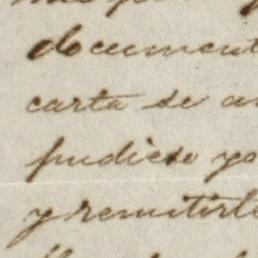 document
carta se a
pudiese yo
y remitirle